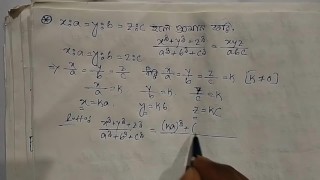 x:a = y:b = z:c হলে প্রমাণ করি:
x³+y³+z³/a³+b³+c³ = xyz/abc
x:a = y:b = z:c
⇒ x/a = y/b = z/c ধরি x/a = y/b = z/c = k [k≠0]
x/a = k y/b = k z/c = k
x = ka y = kb z = kc
L.H.S: x³+y³+z³/a³+b³+c³ = (ka)³+(